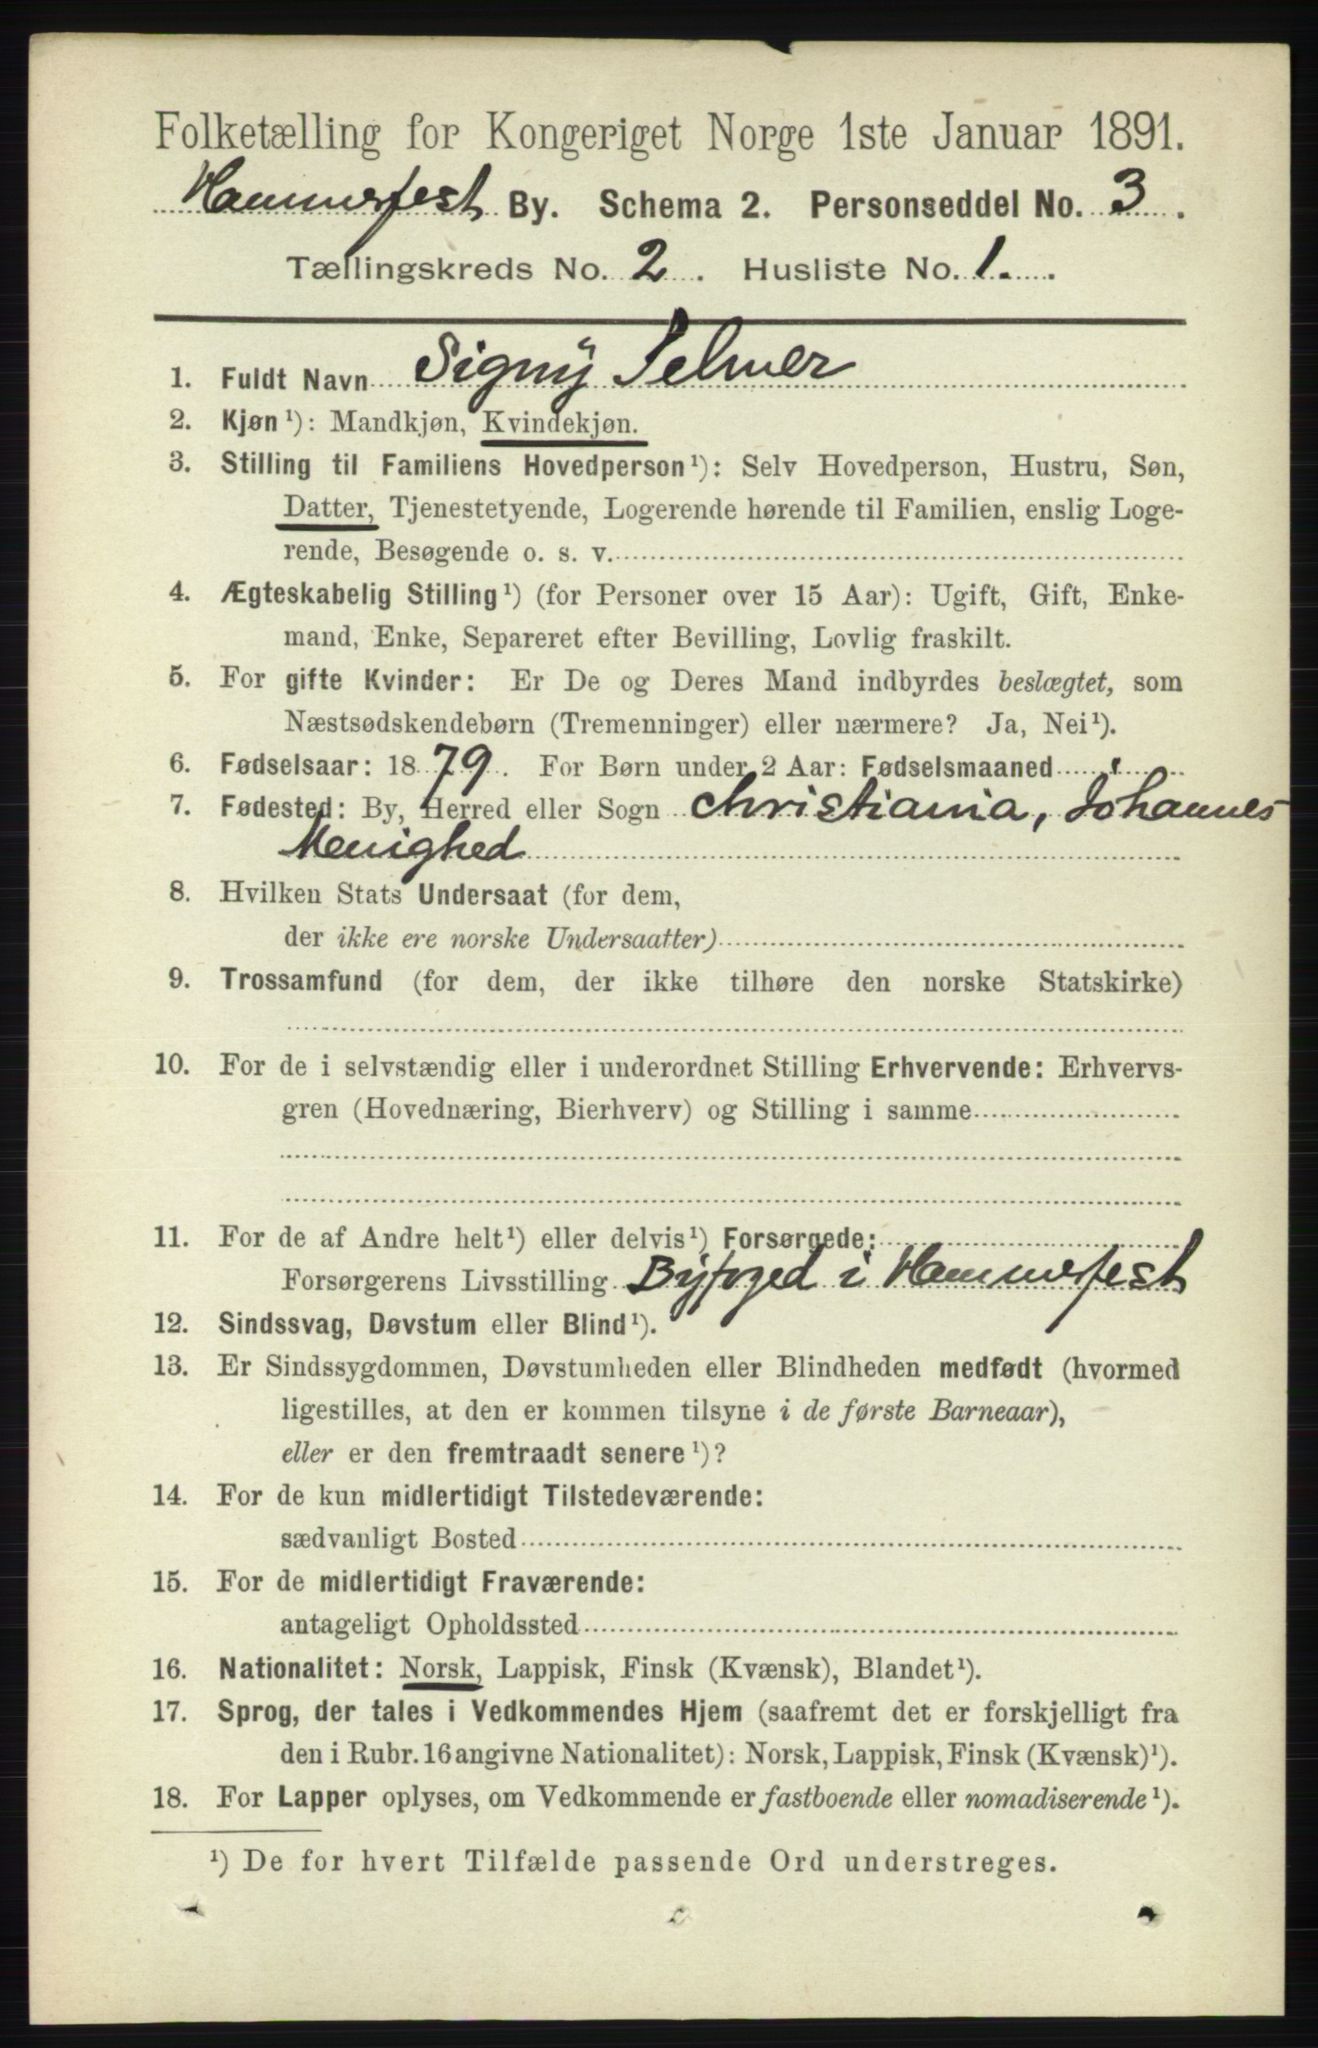 Folketælling for Kongeriget Norge 1ste Januar 1891.
Hammerfest By. Schema 2. Personseddel No. 3.
Tællingskreds No. 2. Husliste No. 1.
1. Fuldt Navn Signy Selmer
2. Kjøn¹): Mandkjøn, Kvindekjøn.
3. Stilling til Familiens Hovedperson¹): Selv Hovedperson, Hustru, Søn,
Datter, Tjenestetyende, Logerende hørende til Familien, enslig Loge-
rende, Besøgende o. s. v.
4. Ægteskabelig Stilling¹) (for Personer over 15 Aar): Ugift, Gift, Enke-
mand, Enke, Separeret efter Bevilling, Lovlig fraskilt.
5. For gifte Kvinder: Er De og Deres Mand indbyrdes beslægtet, som
Næstsødskendebørn (Tremenninger) eller nærmere? Ja, Nei¹).
6. Fødselsaar: 1879. For Børn under 2 Aar: Fødselsmaaned
7. Fødested: By, Herred eller Sogn Christiania, Johannes
Menighed
8. Hvilken Stats Undersaat (for dem,
der ikke ere norske Undersaatter)
9. Trossamfund (for dem, der ikke tilhøre den norske Statskirke)
10. For de i selvstændig eller i underordnet Stilling Erhvervende: Erhvervs-
gren (Hovednæring, Bierhverv) og Stilling i samme
11. For de af Andre helt¹) eller delvis¹) Forsørgede:
Forsørgerens Livsstilling Byfoged i Hammerfest
12. Sindssvag, Døvstum eller Blind¹).
13. Er Sindssygdommen, Døvstumheden eller Blindheden medfødt (hvormed
ligestilles, at den er kommen tilsyne i de første Barneaar),
eller er den fremtraadt senere¹)?
14. For de kun midlertidigt Tilstedeværende:
sædvanligt Bosted
15. For de midlertidigt Fraværende:
antageligt Opholdssted
16. Nationalitet: Norsk, Lappisk, Finsk (Kvænsk), Blandet¹).
17. Sprog, der tales i Vedkommendes Hjem (saafremt det er forskjelligt fra
den i Rubr. 16 angivne Nationalitet): Norsk, Lappisk, Finsk (Kvænsk)¹).
18. For Lapper oplyses, om Vedkommende er fastboende eller nomadiserende¹).
¹) De for hvert Tilfælde passende Ord understreges.